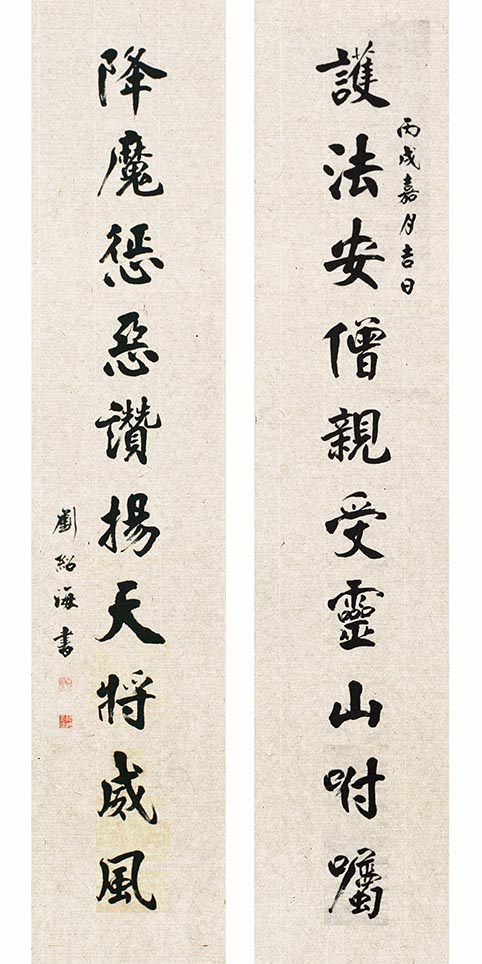 丙戌嘉月吉日
護法安僧親受靈山咐囑
降魔惩惡讚揚天將威風
劉紹海书